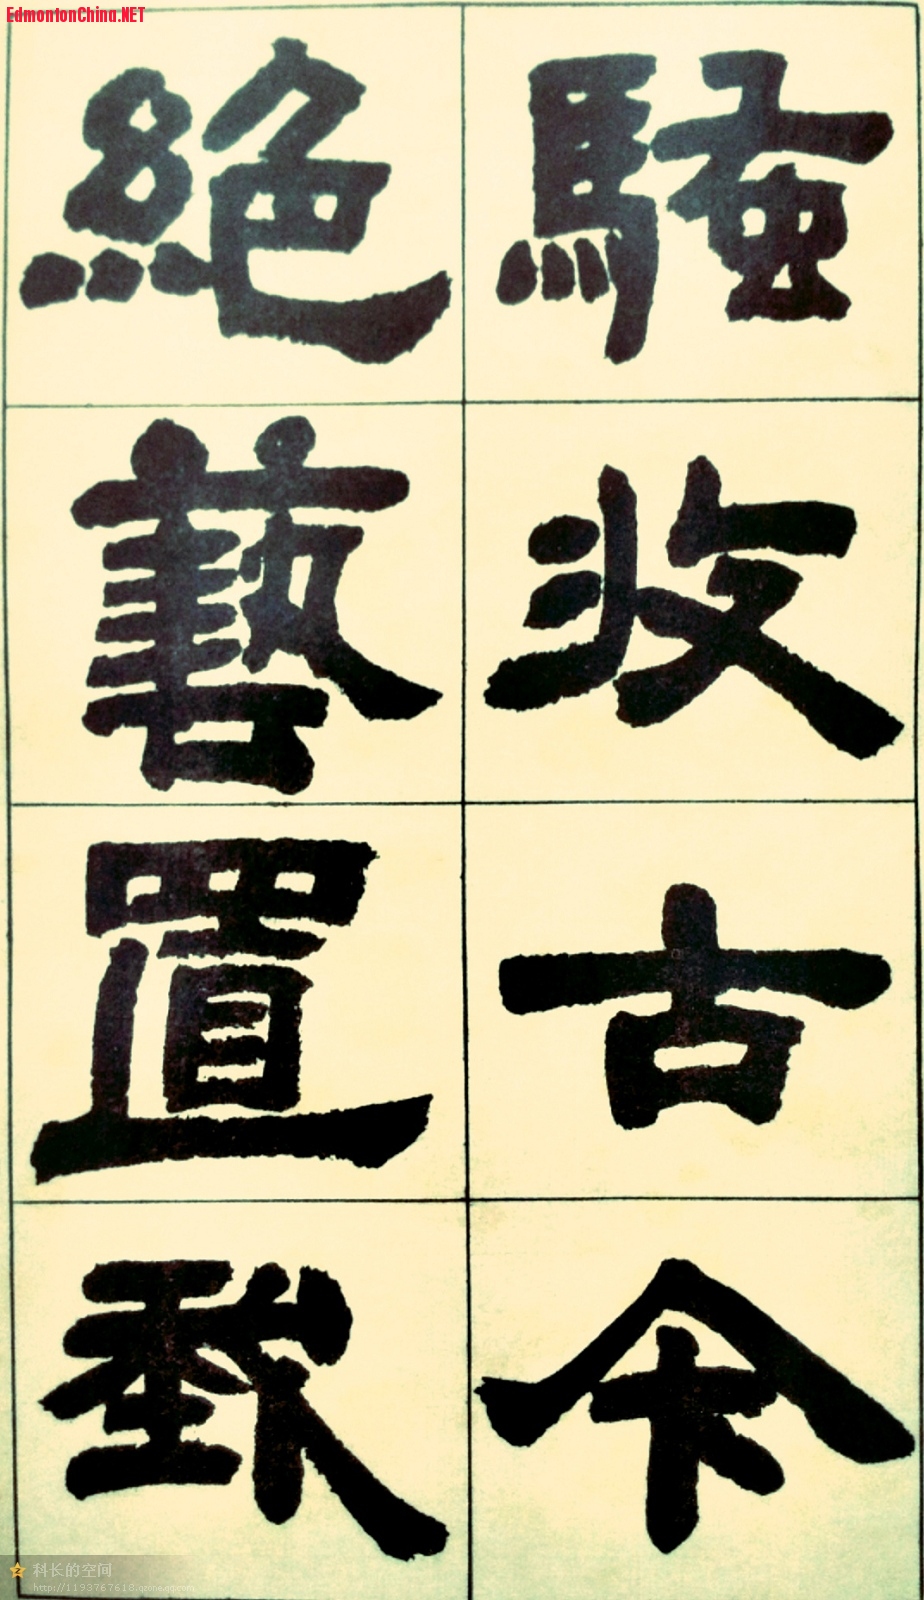 EdmontonChina.NET
騷收古
絕藝置
科长的空间
http://1193767618.qzone.qq.com